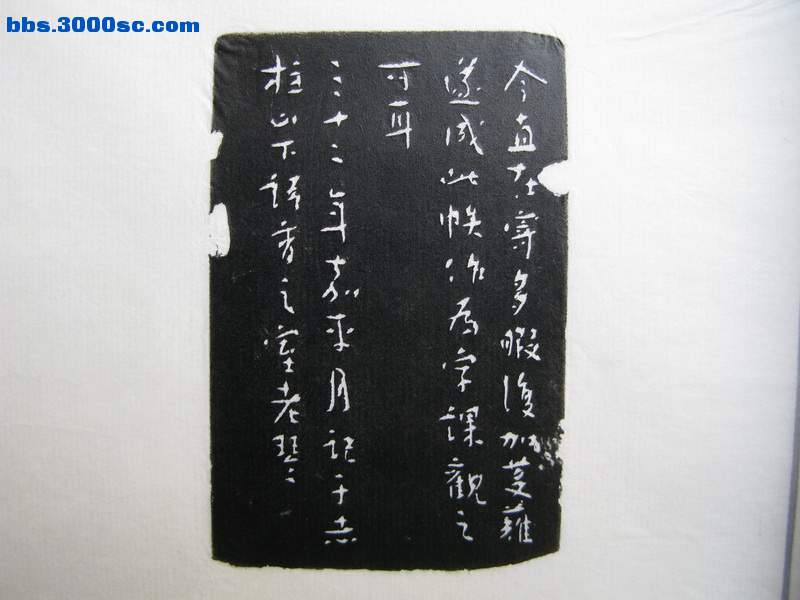 bbs.3000sc.com
今直在寧多暇復加芟薙
遂成此帙作為字課觀之
可耳
三十二年嘉平月記于志
柱山下語香之室老琹